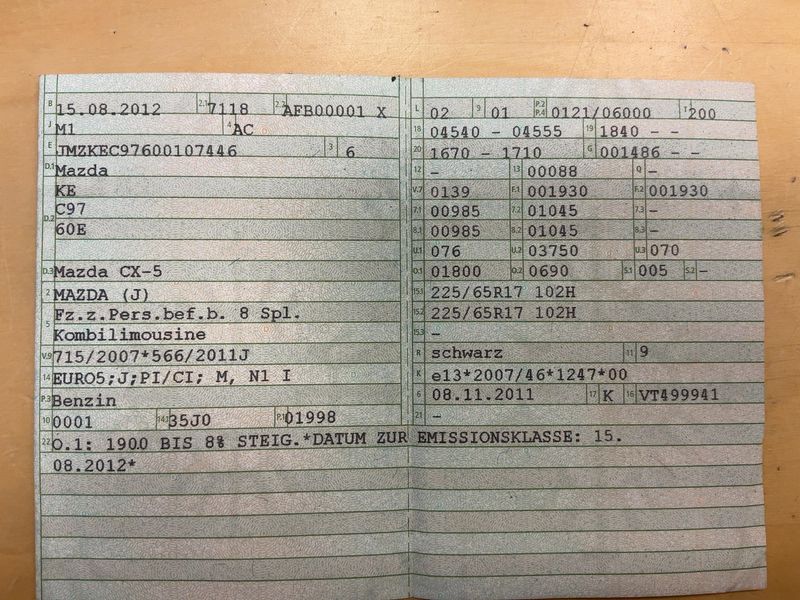 B 15.08.2012 2.1 7118 2.2 AFB00001 X
J M1 4 AC
E JMZKEC97600107446 3 6
D.1 Mazda
KE
D.2 C97
60E
D.3 Mazda CX-5
2 MAZDA (J)
5 Fz.z.Pers.bef.b. 8 Spl.
Kombilimousine
V.9 715/2007*566/2011J
14 EURO5;J;PI/CI; M, N1 I
P.3 Benzin
10 0001 14.1 35J0 P.1 01998
22 O.1: 1900 BIS 8% STEIG.*DATUM ZUR EMISSIONSKLASSE: 15.
08.2012*
L 02 9 01 P.2 P.4 0121/06000 T 200
18 04540 - 04555 19 1840 - -
20 1670 - 1710 G 001486 - -
12 - 13 00088 Q -
V.7 0139 F.1 001930 F.2 001930
7.1 00985 7.2 01045 7.3 -
8.1 00985 8.2 01045 8.3 -
U.1 076 U.2 03750 U.3 070
O.1 01800 O.2 0690 S.1 005 S.2 -
15.1 225/65R17 102H
15.2 225/65R17 102H
15.3 -
R schwarz 11 9
K e13*2007/46*1247*00
6 08.11.2011 17 K 16 VT499941
21 -